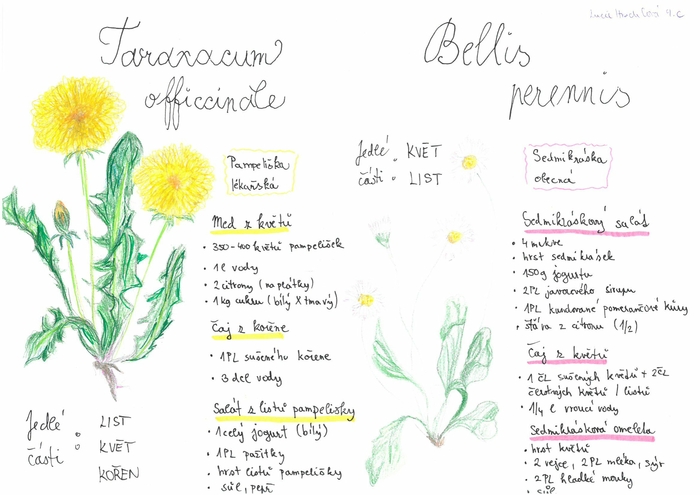 4.C
Taraxacum
officcinale
Pampeliška
lékařská
Med z květů
• 350-400 květů pampelišek
• 1 l vody
• 2 citrony (na plátky)
• 1 kg cukru (bílý X tmavý)
Čaj z kořene
• 1 PL sušeného kořene
• 3 dcl vody
Salát z listů pampelišky
• 1 celý jogurt (bílý)
• 1 PL pažitky
• hrst listů pampelišky
• sůl, pepř
Jedlé
části :
LIST
KVĚT
KOŘEN
Bellis
perennis
Jedlé
části :
KVĚT
LIST
Sedmikráska
obecná
Sedmikráskový salát
• 4 mrkve
• hrst sedmikrásek
• 150g jogurtu
• 2PL javorového sirupu
• 1PL kandované pomerančové kůry
• šťáva z citronu (1/2)
Čaj z květů
• 1 ČL sušených květů + 2ČL
čerstvých květů / listů
• 1/4 l vroucí vody
Sedmikrásková omeleta
• hrst květů
• 2 vejce, 2PL mléka, sýr
• 2PL hladké mouky
• sůl